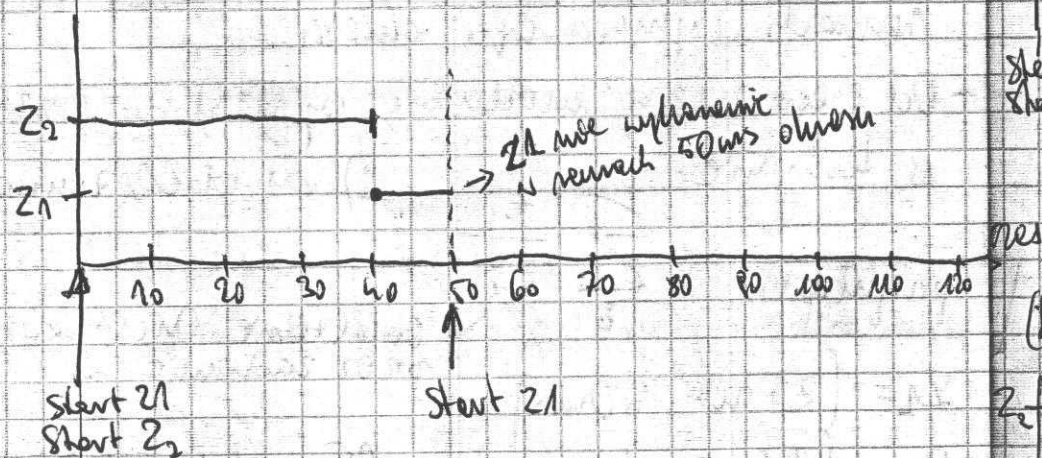 Z2
Z1 nie wykonanie
w ramach 50ms okresu
Z1
10 20 30 40 50 60 70 80 90 100 110 120
Start Z1
Start Z2
Start Z1
Z2